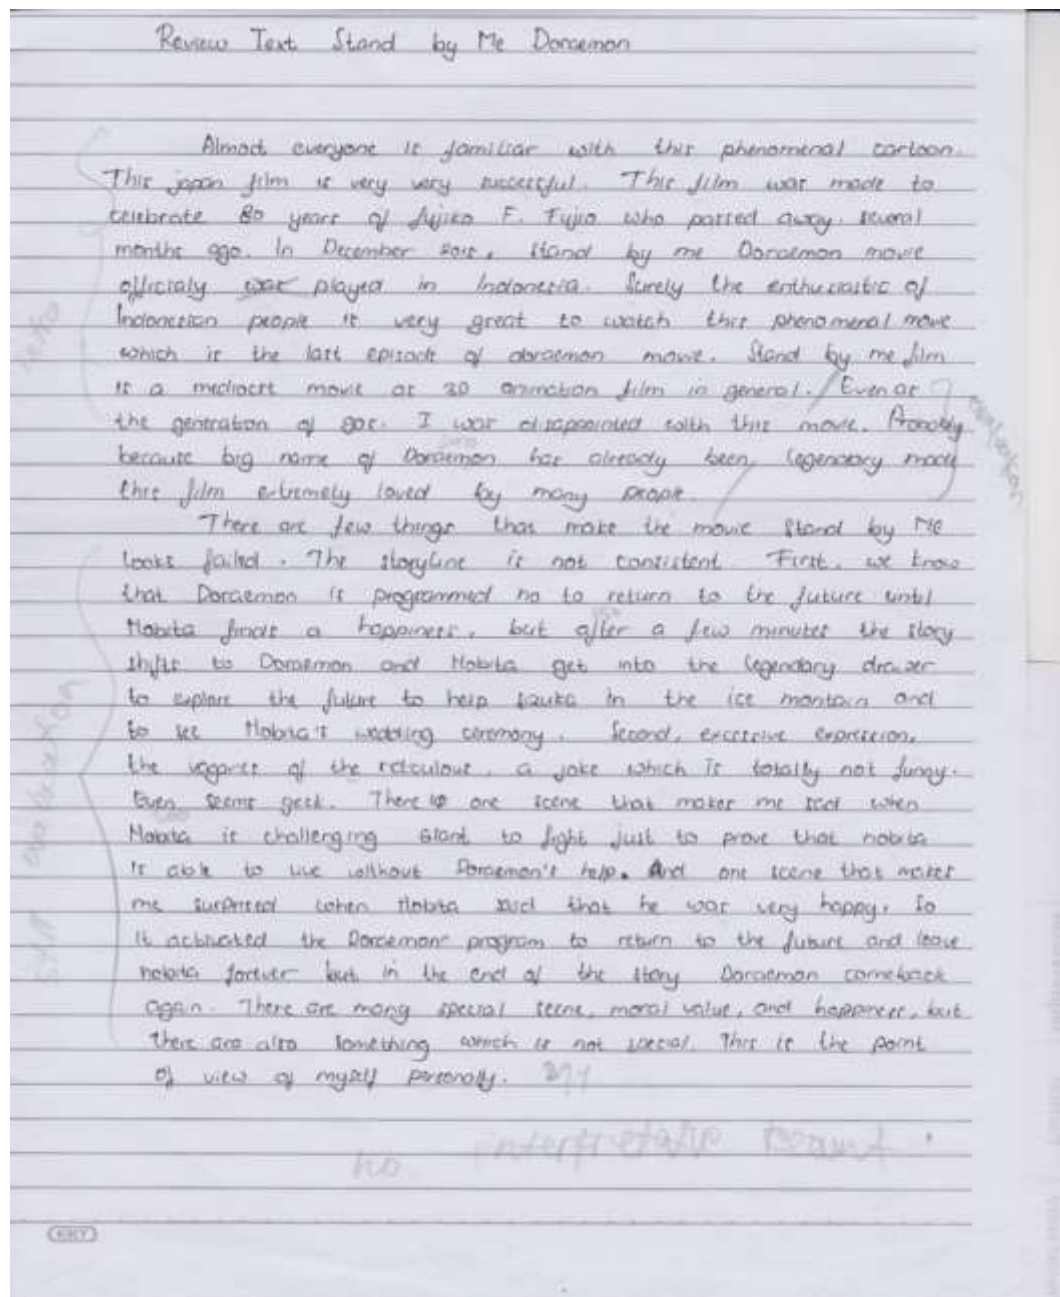 Review Text Stand by Me Doraemon
Almost everyone is familiar with this phenomenal cartoon.
This japan film is very very successful. This film was made to
celebrate 80 years of fujiko F. Fujio who passed away several
months ago. In December 2015, stand by me Doraemon movie
officialy was played in Indonesia. Surely the enthusiastic of
Indonesian people is very great to watch this phenomenal movie
which is the last episode of doraemon movie. Stand by me film
is a mediocre movie as 3D animation film in general. Even as
the generation of 90s. I was disappointed with this movie. Probably
because big name of Doraemon has already been legendary made
this film extremely loved by many people.
There are few things that make the movie Stand by Me
looks failed. The storyline is not consistent. First, we know
that Doraemon is programmed no to return to the future until
Nobita finds a happiness, but after a few minutes the story
shifts to Doraemon and Nobita get into the legendary drawer
to explore the future to help in the ice montain and
to see Nobita's wedding ceremony. Second, excessive expression,
the vagaries of the rediculous, a joke which is totally not funny.
Even seems geek. There is one scene that makes me sad when
Nobita is challenging Giant to fight just to prove that nobita
is able to live without Doraemon's help. And one scene that makes
me surprised when Nobita said that he was very happy. So
it activated the Doraemons program to return to the future and leave
nobita forever but in the end of the story Doraemon comeback
again. There are many special scene, moral value, and happiness, but
there are also something which is not special. This is the point
of view of myself personally. 271
no interpretative recount
still evaluation
evaluation